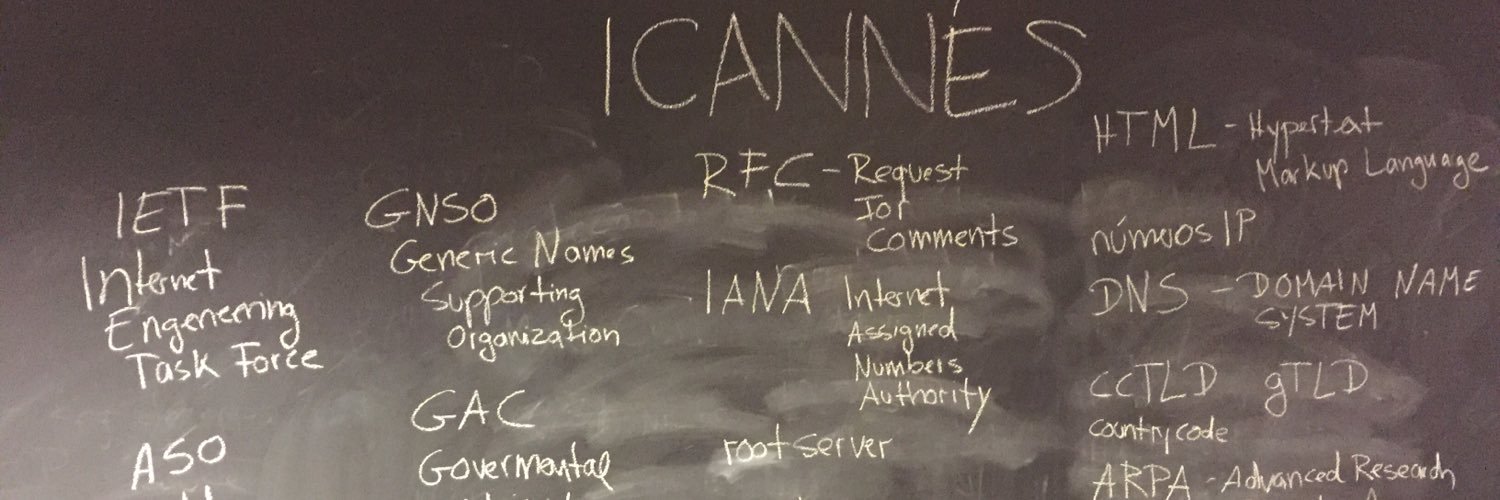 ICANNÉS
IETF
Internet
Engeneering
Task Force
ASO
GNSO
Generic Names
Supporting
Organization
GAC
Govermental
RFC - Request
for
Comments
IANA Internet
Assigned
Numbers
Authority
root server
HTML - Hypertext
Markup Language
números IP
DNS - DOMAIN NAME
SYSTEM
ccTLD gTLD
country code
ARPA - Advanced Research